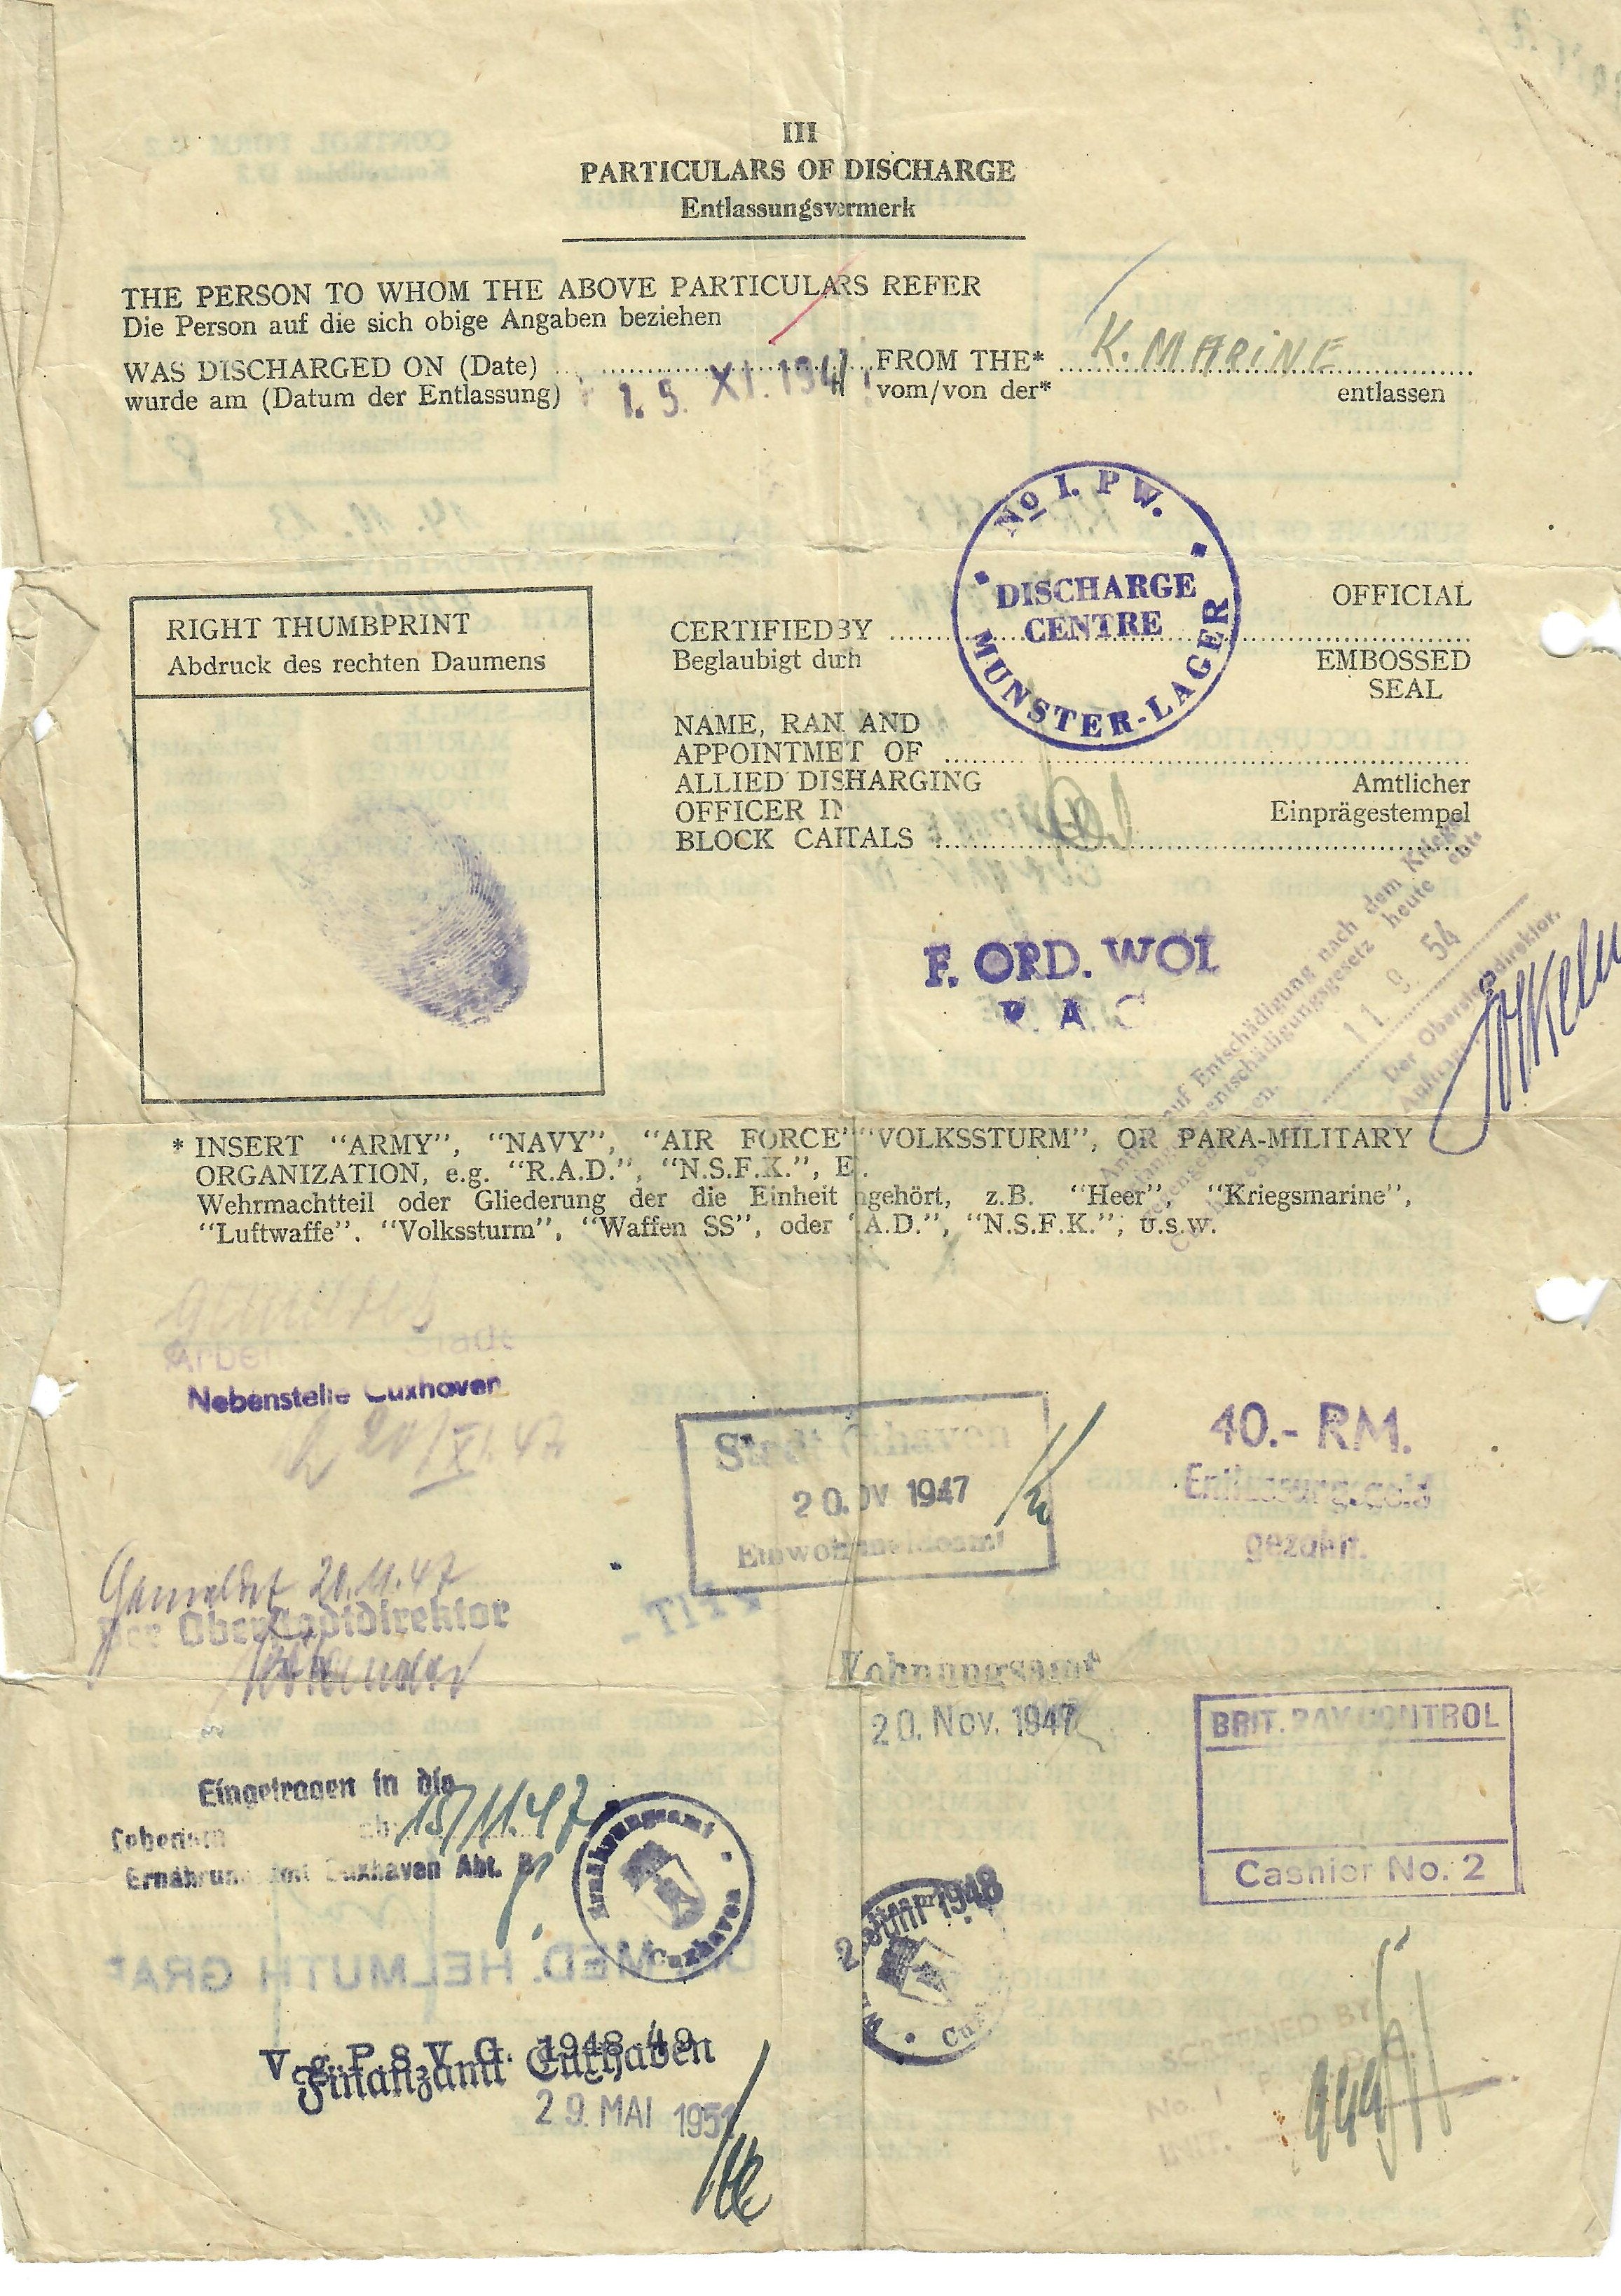 III
PARTICULARS OF DISCHARGE
Entlassungsvermerk
THE PERSON TO WHOM THE ABOVE PARTICULARS REFER
Die Person auf die sich obige Angaben beziehen
WAS DISCHARGED ON (Date) FROM THE* K. MARINE
wurde am (Datum der Entlassung) 15. XI. 1947 vom/von der* entlassen
No I. P W.
DISCHARGE
CENTRE
MUNSTER-LAGER
RIGHT THUMBPRINT
Abdruck des rechten Daumens
CERTIFIED BY
Beglaubigt durch
OFFICIAL
EMBOSSED
SEAL
NAME, RAN AND
APPOINTMET OF
ALLIED DISHARGING
OFFICER IN
BLOCK CAITALS
Amtlicher
Einprägestempel
F. ORD. WOI
R. A. C
auf Entschädigung nach dem Kriegs-
gefangenenentschädigungsgesetz heute ent-
11 9. 54
Der Oberstadtdirektor.
* INSERT "ARMY", "NAVY", "AIR FORCE" "VOLKSSTURM", OR PARA-MILITARY
ORGANIZATION, e.g. "R.A.D.", "N.S.F.K.", E.
Wehrmachtteil oder Gliederung der die Einheit ngehört, z.B. "Heer", "Kriegsmarine",
"Luftwaffe". "Volkssturm", "Waffen SS", oder .A.D.", "N.S.F.K.", u.s.w.
gemeldet
Nebenstelle Cuxhaven
20/XI.47
Stadt Cuxhaven
20. NOV 1947
Einwohnermeldeamt
40.- RM.
Entlassungsgeld
gezahlt.
Gemeldet 20.11.47
Der Oberstadtdirektor
Wohnungsamt
20. Nov. 1947
BRIT. PAY CONTROL
Cashier No. 2
Eingetragen in die
ab 15/11.47
Ernährungsamt Cuxhaven Abt. B
Ernährungsamt
Cuxhaven
2. Juni 1948
V.g.P.s.V.G. 1948/49
Finanzamt Cuxhaven
29. MAI 1951
SCREENED BY
No. 1
UNIT.